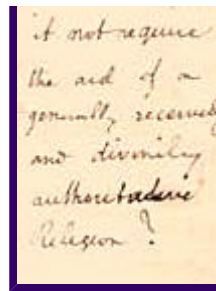 it not require
the aid of a
generally received
and divinely
authoritative
Religion?